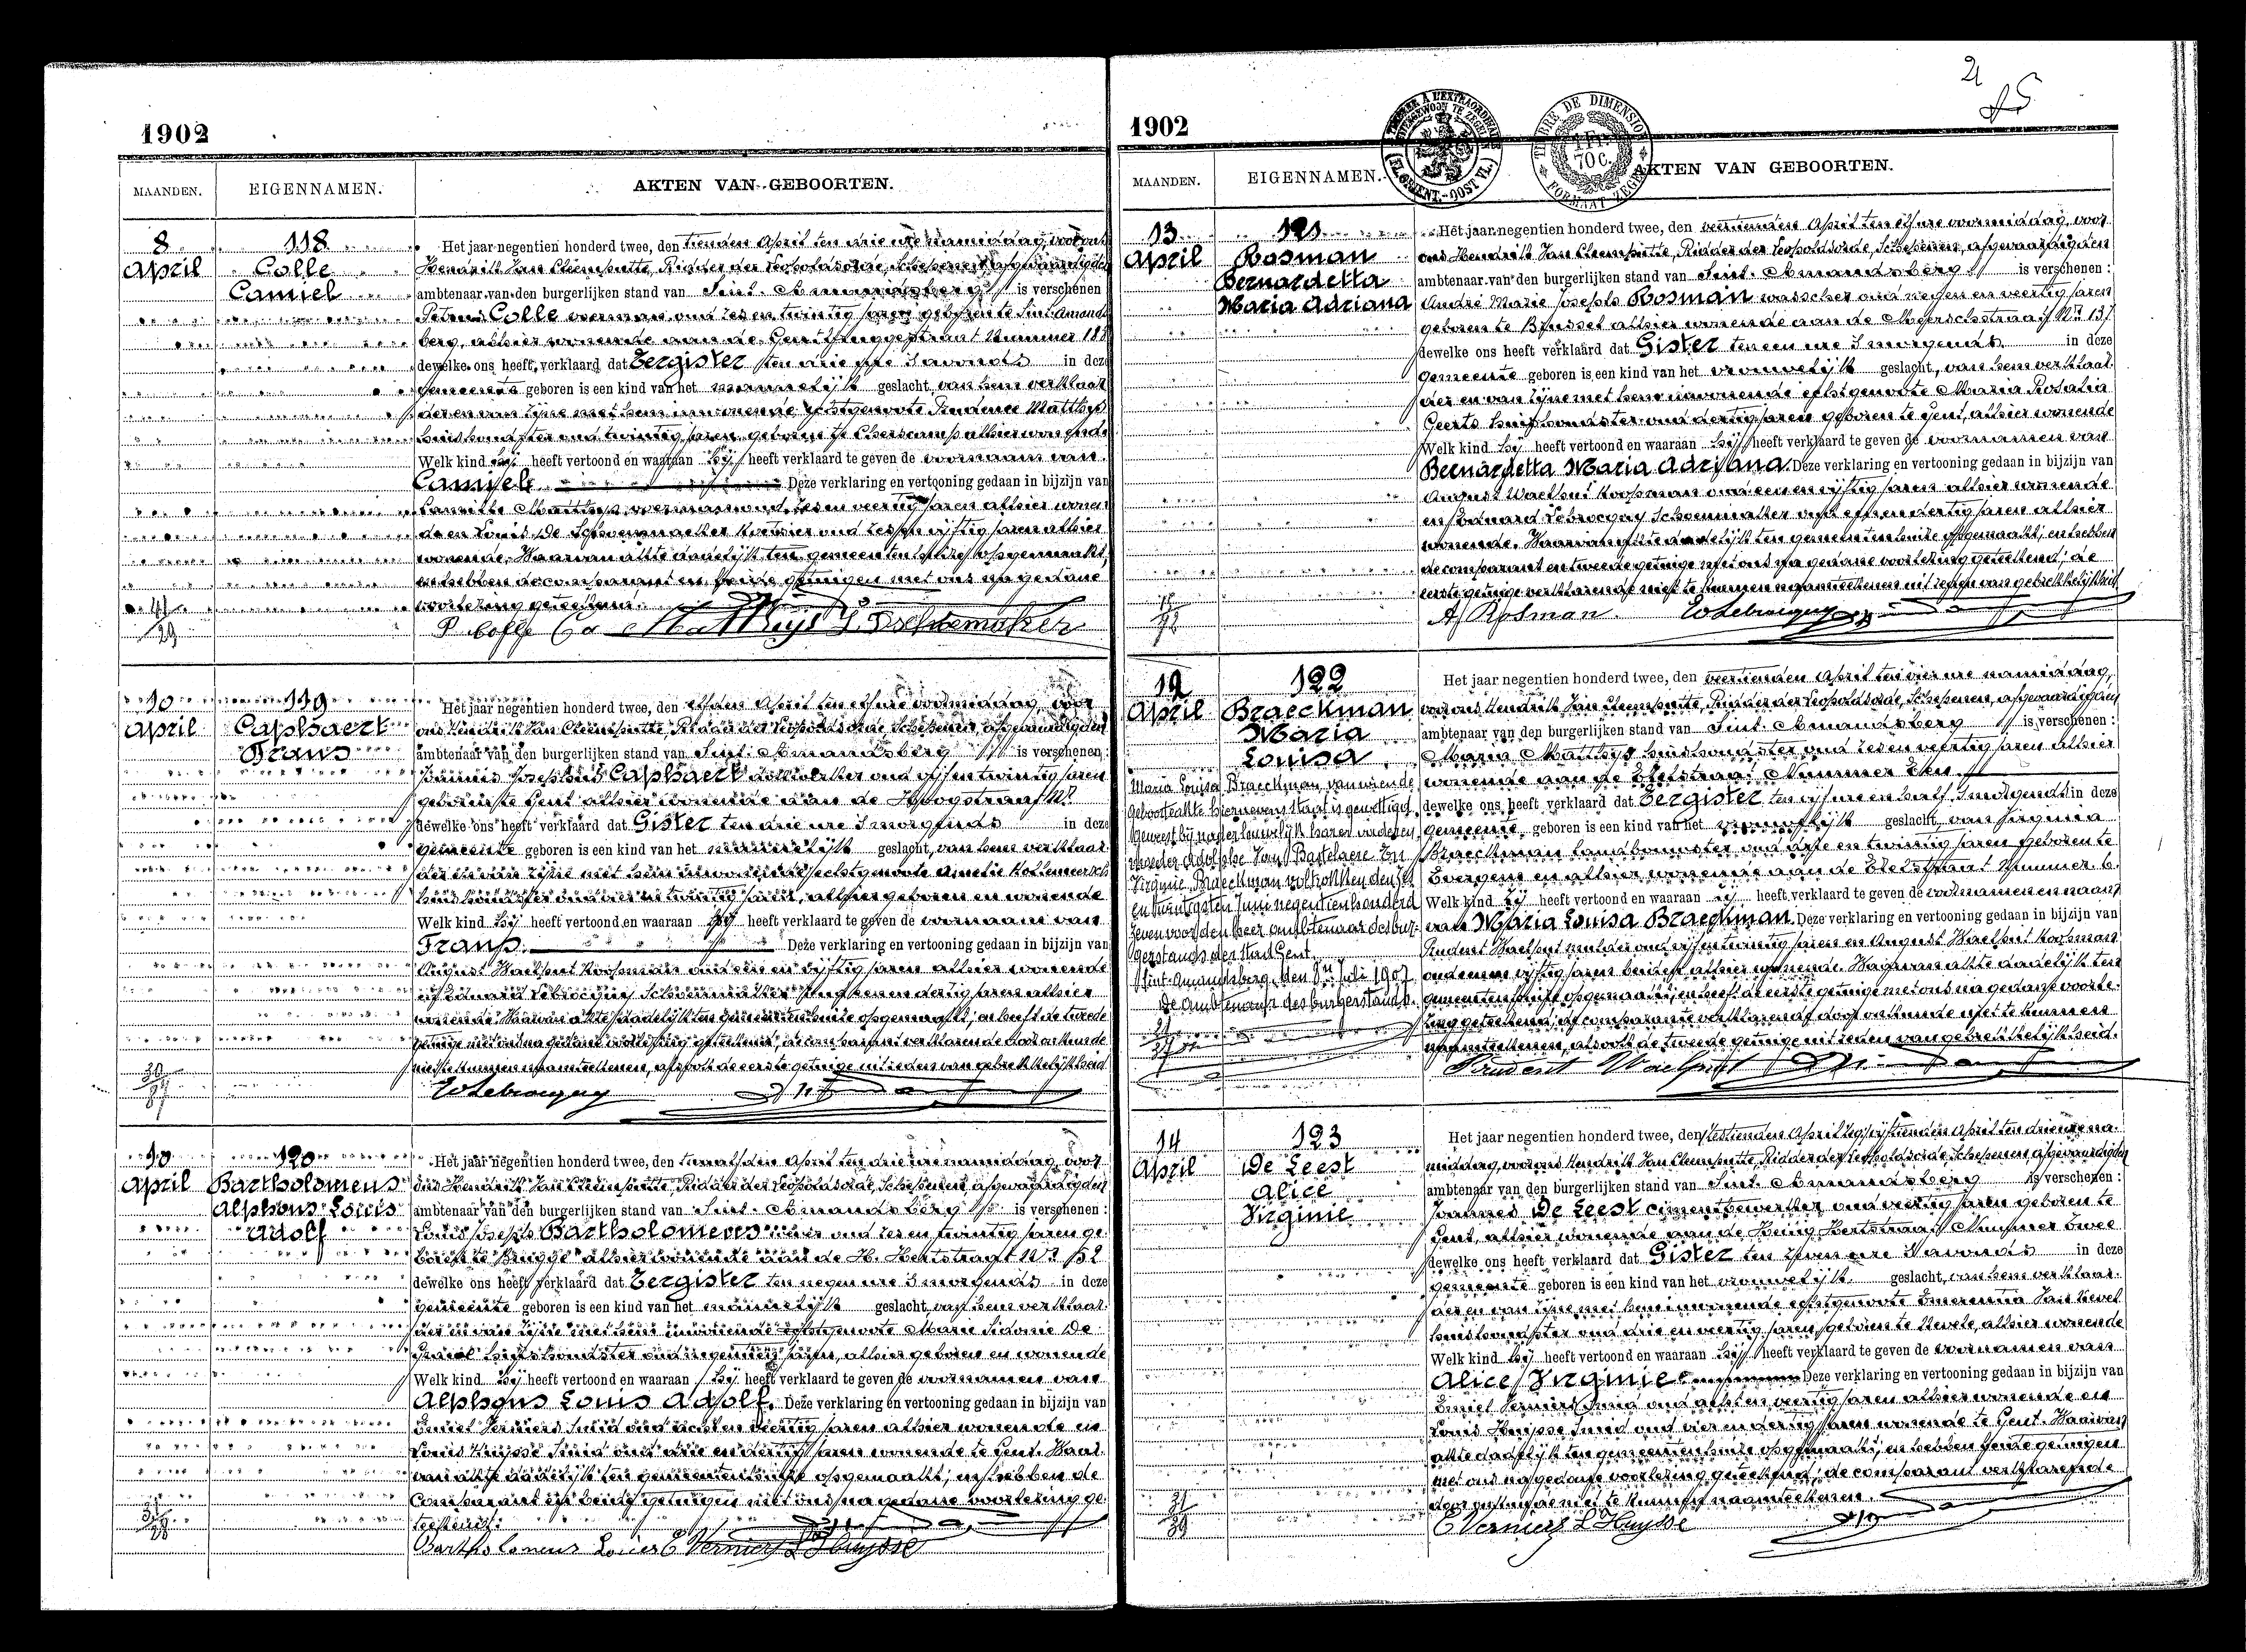 1902
MAANDEN. EIGENNAMEN. AKTEN VAN GEBOORTEN.
8
April
118
Colle
Camiel
Het jaar negentien honderd twee, den tienden April ten drie ure namiddag, voor ons
Hendrik Jan Cleemputte, Ridder der Leopoldsorde, Schepenen, afgevaardigden
ambtenaar van den burgerlijken stand van Sint-Amandsberg is verschenen
Petrus Colle voerman oud zes en twintig jaren geboren te Sint Amands
berg, alhier wonende aan de Nummer 188
dewelke ons heeft verklaard dat Eergister ten drie ure 's avonds in deze
gemeente geboren is een kind van het mannelijk geslacht, van hem verklaar
der en van zijne met hem inwonende echtgenoote Prudence Matthys
huishoudster oud twintig jaren geboren te alhier wonende
Welk kind hij heeft vertoond en waaraan hij heeft verklaard te geven de voornaam van
Camiel Deze verklaring en vertooning gedaan in bijzijn van
Matthys voerman oud zes en veertig jaren alhier wonen
de en Louis De oud zes en vijftig jaren alhier
wonende. Waarvan akte dadelijk ten gemeentenhuize opgemaakt,
en hebben de comparant en beide getuigen met ons na gedane
voorlezing geteekend.
P. Colle Ca Matthys
10
April
119
Caphaert
Frans
Het jaar negentien honderd twee, den elfden April ten elf ure voormiddag, voor
ons Hendrik Jan Cleemputte, Ridder der Leopoldsorde, Schepenen, afgevaardigden
ambtenaar van den burgerlijken stand van Sint-Amandsberg is verschenen:
Josephus Caphaert oud vijf en twintig jaren
geboren te Gent alhier wonende aan de Hoogstraat Nr
dewelke ons heeft verklaard dat Gister ten drie ure 's morgends in deze
gemeente geboren is een kind van het mannelijk geslacht, van hem verklaar
der en van zijne met hem inwonende echtgenoote Amelie
huishoudster oud en twintig jaren, alhier geboren en wonende
Welk kind hij heeft vertoond en waaraan hij heeft verklaard te geven de voornaam van
Frans. Deze verklaring en vertooning gedaan in bijzijn van
August Waelput Koopman oud een en vijftig jaren alhier wonende
en Eduard Lebrocquy Schoenmaker oud en dertig jaren alhier
wonende. Waarvan akte dadelijk ten gemeentenhuize opgemaakt, en heeft de tweede
getuige met ons na gedane voorlezing geteekend, de comparant verklarende door onkunde
niet te kunnen naamteekenen, alsook de eerste getuige uit reden van gebrekkelijkheid
Ed Lebrocquy
10
April
120
Bartholomeus
Alphons Louis
Adolf
Het jaar negentien honderd twee, den twaalfden April ten drie ure namiddag, voor
ons Hendrik Jan Cleemputte, Ridder der Leopoldsorde, Schepenen, afgevaardigden
ambtenaar van den burgerlijken stand van Sint-Amandsberg is verschenen:
Louis Joseph Bartholomeus oud zes en twintig jaren ge
boren te Brugge alhier wonende aan de H. Hertstraat Nr 52
dewelke ons heeft verklaard dat Eergister ten negen ure 's morgends in deze
gemeente geboren is een kind van het mannelijk geslacht, van hem verklaar
der en van zijne met hem inwonende echtgenoote Marie Sidonie De
huishoudster oud negentien jaren, alhier geboren en wonende
Welk kind hij heeft vertoond en waaraan hij heeft verklaard te geven de voornamen van
Alphons Louis Adolf. Deze verklaring en vertooning gedaan in bijzijn van
Emiel Verniers Smid oud acht en veertig jaren alhier wonende en
Louis Huysse Smid oud drie en dertig jaren wonende te Gent. Waar
van akte dadelijk ten gemeentenhuize opgemaakt, en hebben de
Comparant en beide getuigen met ons na gedane voorlezing ge
teekend.
Bartholomeus Louis E. Verniers L. Huysse
1902
TIMBRE DE DIMENSION
1 Fr.
70 c.
FORMAAT ZEGEL
MAANDEN. EIGENNAMEN. AKTEN VAN GEBOORTEN.
13
April
121
Rosman
Bernardetta
Maria Adriana
Het jaar negentien honderd twee, den veertienden April ten elf ure voormiddag, voor
ons Hendrik Jan Cleemputte, Ridder der Leopoldsorde, Schepenen, afgevaardigden
ambtenaar van den burgerlijken stand van Sint-Amandsberg is verschenen:
André Marie Joseph Rosman wasscher oud negen en veertig jaren
geboren te Brussel alhier wonende aan de Meerschstraat Nr 137
dewelke ons heeft verklaard dat Gister ten een ure 's morgends in deze
gemeente geboren is een kind van het vrouwelijk geslacht, van hem verklaar
der en van zijne met hem inwonende echtgenoote Maria Rosalia
Geerts huishoudster oud dertig jaren geboren te Gent, alhier wonende
Welk kind hij heeft vertoond en waaraan hij heeft verklaard te geven de voornamen van
Bernardetta Maria Adriana. Deze verklaring en vertooning gedaan in bijzijn van
August Waelput Koopman oud een en vijftig jaren alhier wonende
en Eduard Lebrocquy Schoenmaker oud en dertig jaren alhier
wonende. Waarvan akte dadelijk ten gemeentenhuize opgemaakt, en hebben
de comparant en tweede getuige met ons na gedane voorlezing geteekend, de
eerste getuige verklarende niet te kunnen naamteekenen uit reden van gebrekkelijkheid
A. Rosman. Ed Lebrocquy
12
April
122
Braeckman
Maria
Louisa
Maria Louisa Braeckman, van wiende
geboorteakte hiernevens staat is gewettigd
geweest bij het huwelijk harer ouderen
Adolphe Van Bastelaere en
Virginie Braeckman voltrokken den
en twintigsten Juni negentienhonderd
zeven voor den heer ambtenaar des bur-
gerstands der stad Gent.
Sint-Amandsberg, den 8n Juli 1907
De Ambtenaar des burgerstands.
Het jaar negentien honderd twee, den veertienden April ten vier ure namiddag,
voor ons Hendrik Jan Cleemputte, Ridder der Leopoldsorde, Schepenen, afgevaardigden
ambtenaar van den burgerlijken stand van Sint-Amandsberg is verschenen:
Maria Matthys huishoudster oud zes en veertig jaren alhier
wonende aan de Nummer
dewelke ons heeft verklaard dat Eergister ten vijf ure en half 's morgends in deze
gemeente geboren is een kind van het vrouwelijk geslacht, van Virginia
Braeckman landbouwster oud drie en twintig jaren geboren te
Evergem en alhier wonende aan de Nummer 6.
Welk kind zij heeft vertoond en waaraan zij heeft verklaard te geven de voornamen en naam
van Maria Louisa Braeckman. Deze verklaring en vertooning gedaan in bijzijn van
Prudent Waelput mulder oud vijf en twintig jaren en August Waelput Koopman
oud een en vijftig jaren beiden alhier wonende. Waarvan akte dadelijk ten
gemeentenhuize opgemaakt, en heeft de eerste getuige met ons na gedane voorle-
zing geteekend, de comparante verklarende door onkunde niet te kunnen
naamteekenen, alsook de tweede getuige uit reden van gebrekkelijkheid.
Prudent Waelput
14
April
123
De Leest
Alice
Virginie
Het jaar negentien honderd twee, den zestienden April zegge vijftienden April ten drie ure na-
middag, voor ons Hendrik Jan Cleemputte, Ridder der Leopoldsorde, Schepenen, afgevaardigden
ambtenaar van den burgerlijken stand van Sint-Amandsberg is verschenen:
Joannes De Leest cimentbewerker oud veertig jaren geboren te
Gent, alhier wonende aan de Heilig Hertstraat Nummer Twee
dewelke ons heeft verklaard dat Gister ten zeven ure 's avonds in deze
gemeente geboren is een kind van het vrouwelijk geslacht, van hem verklaar-
der en van zijne met hem inwonende echtgenoote Emerentia Van Hevel
huishoudster oud drie en veertig jaren, geboren te Nevele, alhier wonende
Welk kind hij heeft vertoond en waaraan hij heeft verklaard te geven de voornamen van
Alice Virginie Deze verklaring en vertooning gedaan in bijzijn van
Emiel Verniers Smid oud acht en veertig jaren alhier wonende en
Louis Huysse Smid oud vier en dertig jaren wonende te Gent. Waarvan
akte dadelijk ten gemeentenhuize opgemaakt, en hebben beide getuigen
met ons na gedane voorlezing geteekend, de comparant verklarende
door onkunde niet te kunnen naamteekenen.
E. Verniers L. Huysse